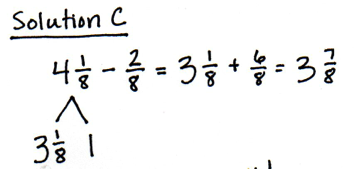 Solution C
4 1/8 - 2/8 = 3 1/8 + 6/8 = 3 7/8
3 1/8 1